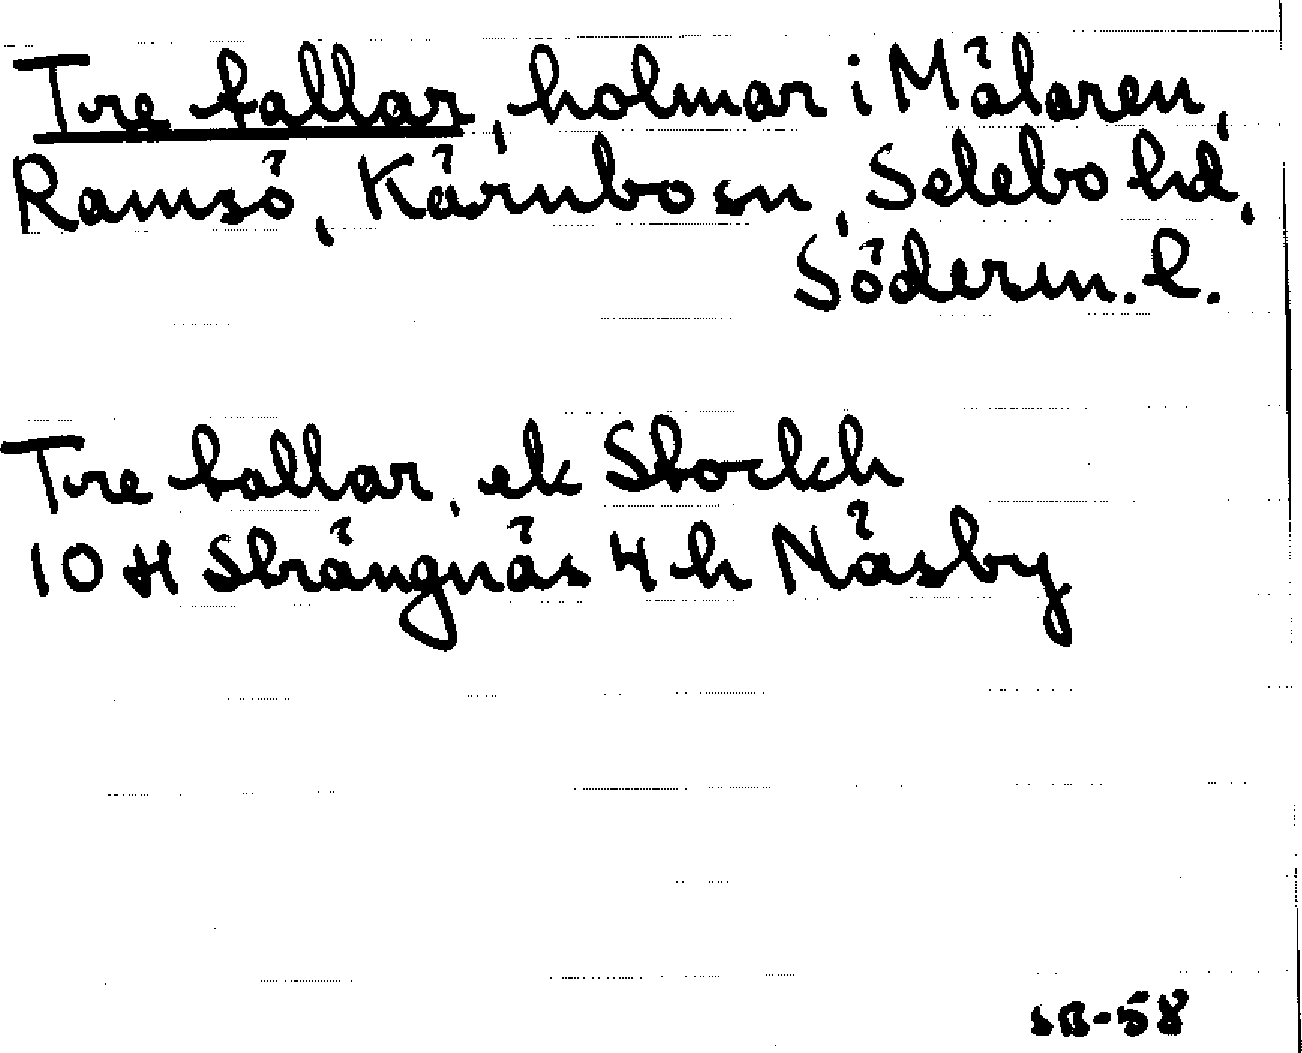 Tre tallar, holmar i Mälaren,
Ramsö, Kärnbo sn, Selebo hd,
Söderm. l.
Tre tallar, ek Stockh
10 H Strängnäs 4 h Näsby
SB-58